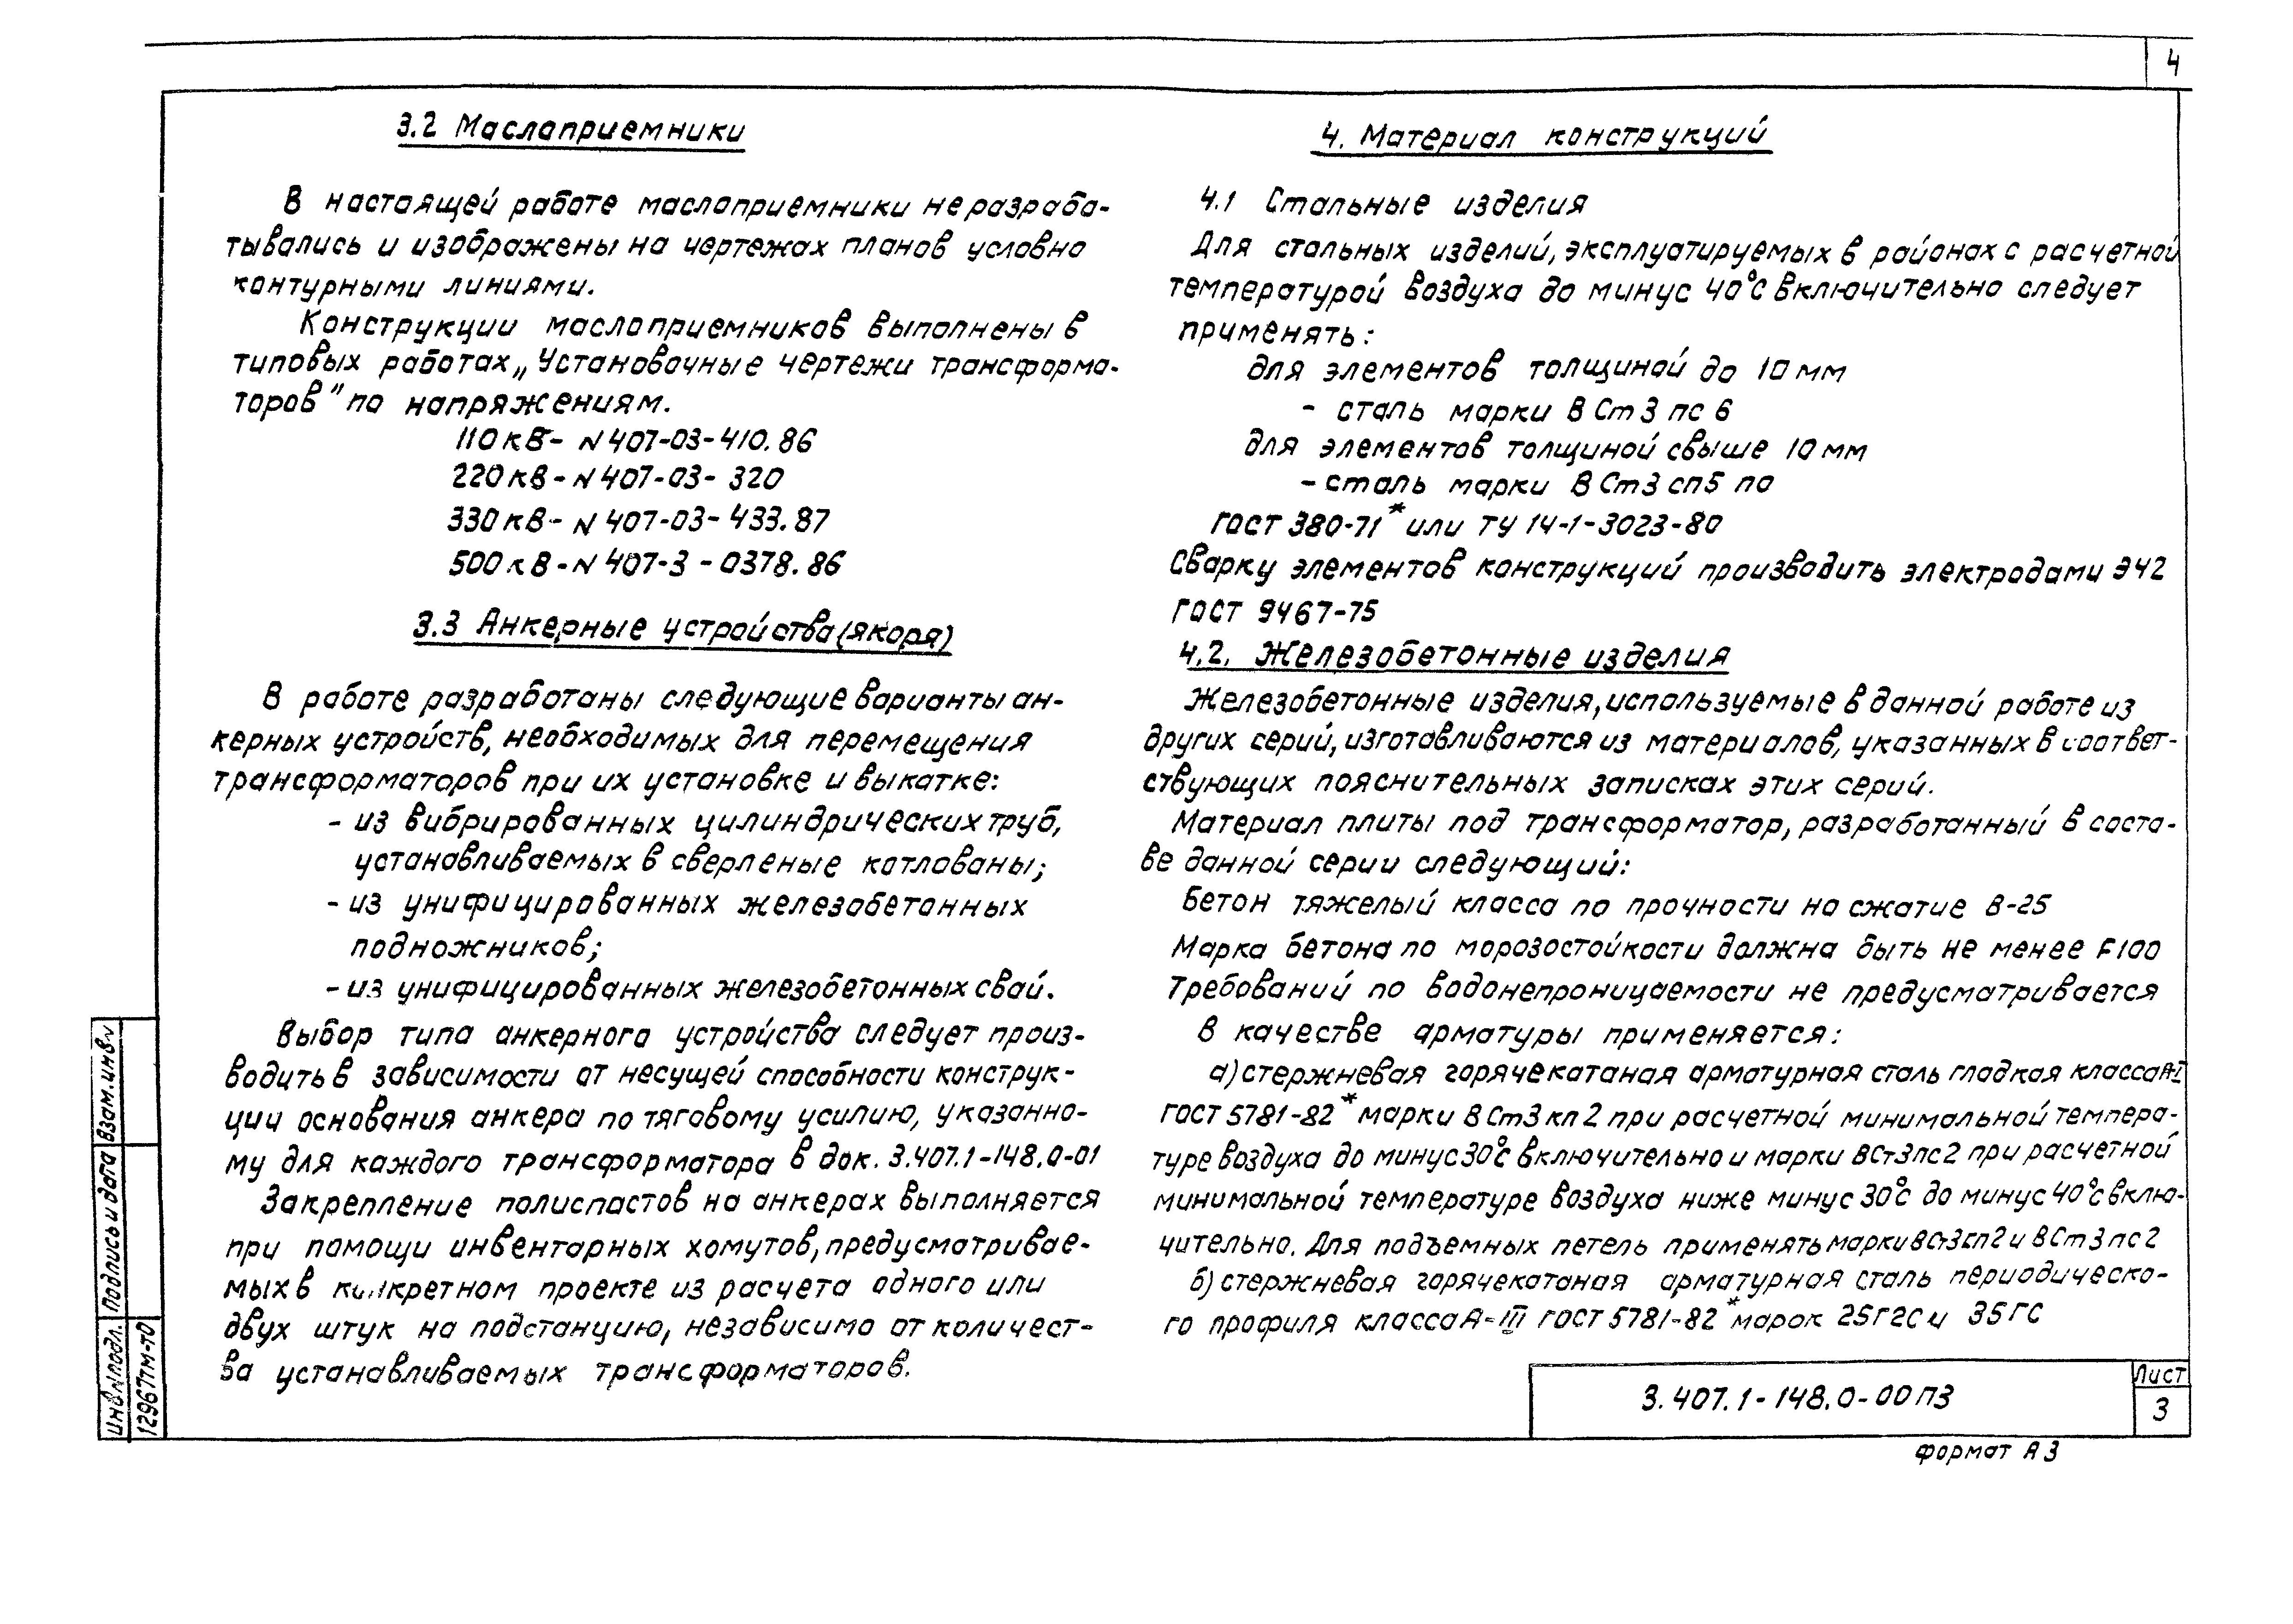 4
3.2 Маслоприемники
В настоящей работе маслоприемники не разраба-
тывались и изображены на чертежах планов условно
контурными линиями.
Конструкции маслоприемников выполнены в
типовых работах „Установочные чертежи трансформа-
торов" по напряжениям.
110 кВ - N 407-03-410.86
220 кВ - N 407-03-320
330 кВ - N 407-03-433.87
500 кВ - N 407-3-0378.86
3.3 Анкерные устройства (якоря)
В работе разработаны следующие варианты ан-
керных устройств, необходимых для перемещения
трансформаторов при их установке и выкатке:
- из вибрированных цилиндрических труб,
устанавливаемых в сверленые котлованы;
- из унифицированных железобетонных
подножников;
- из унифицированных железобетонных свай.
Выбор типа анкерного устройства следует произ-
водить в зависимости от несущей способности конструк-
ции основания анкера по тяговому усилию, указанно-
му для каждого трансформатора в док. 3.407.1-148.0-01
Закрепление полиспастов на анкерах выполняется
при помощи инвентарных хомутов, предусматривае-
мых в конкретном проекте из расчета одного или
двух штук на подстанцию, независимо от количест-
ва устанавливаемых трансформаторов.
4. Материал конструкций
4.1 Стальные изделия
Для стальных изделий, эксплуатируемых в районах с расчетной
температурой воздуха до минус 40°С включительно следует
применять:
для элементов толщиной до 10 мм
- сталь марки В Ст 3 пс 6
для элементов толщиной свыше 10 мм
- сталь марки В Ст3 сп5 по
ГОСТ 380-71* или ТУ 14-1-3023-80
Сварку элементов конструкций производить электродами Э42
ГОСТ 9467-75
4.2. Железобетонные изделия
Железобетонные изделия, используемые в данной работе из
других серий, изготавливаются из материалов, указанных в соответ-
ствующих пояснительных записках этих серий.
Материал плиты под трансформатор, разработанный в соста-
ве данной серии следующий:
Бетон тяжелый класса по прочности на сжатие В-25
Марка бетона по морозостойкости должна быть не менее F100
Требований по водонепроницаемости не предусматривается
В качестве арматуры применяется:
а) стержневая горячекатаная арматурная сталь гладкая класса А-I
ГОСТ 5781-82* марки В Ст3 кп 2 при расчетной минимальной темпера-
туре воздуха до минус 30°С включительно и марки ВСт3пс2 при расчетной
минимальной температуре воздуха ниже минус 30°С до минус 40°С вклю-
чительно. Для подъемных петель применять марки ВСт3сп2 и ВСт3пс2
б) стержневая горячекатаная арматурная сталь периодическо-
го профиля класса А-III ГОСТ 5781-82* марок 25Г2С и 35ГС
Взам.инв.N
Подпись и дата
Инв.N подл.
12967тм-т0
3.407.1-148.0-00ПЗ
Лист
3
формат А3